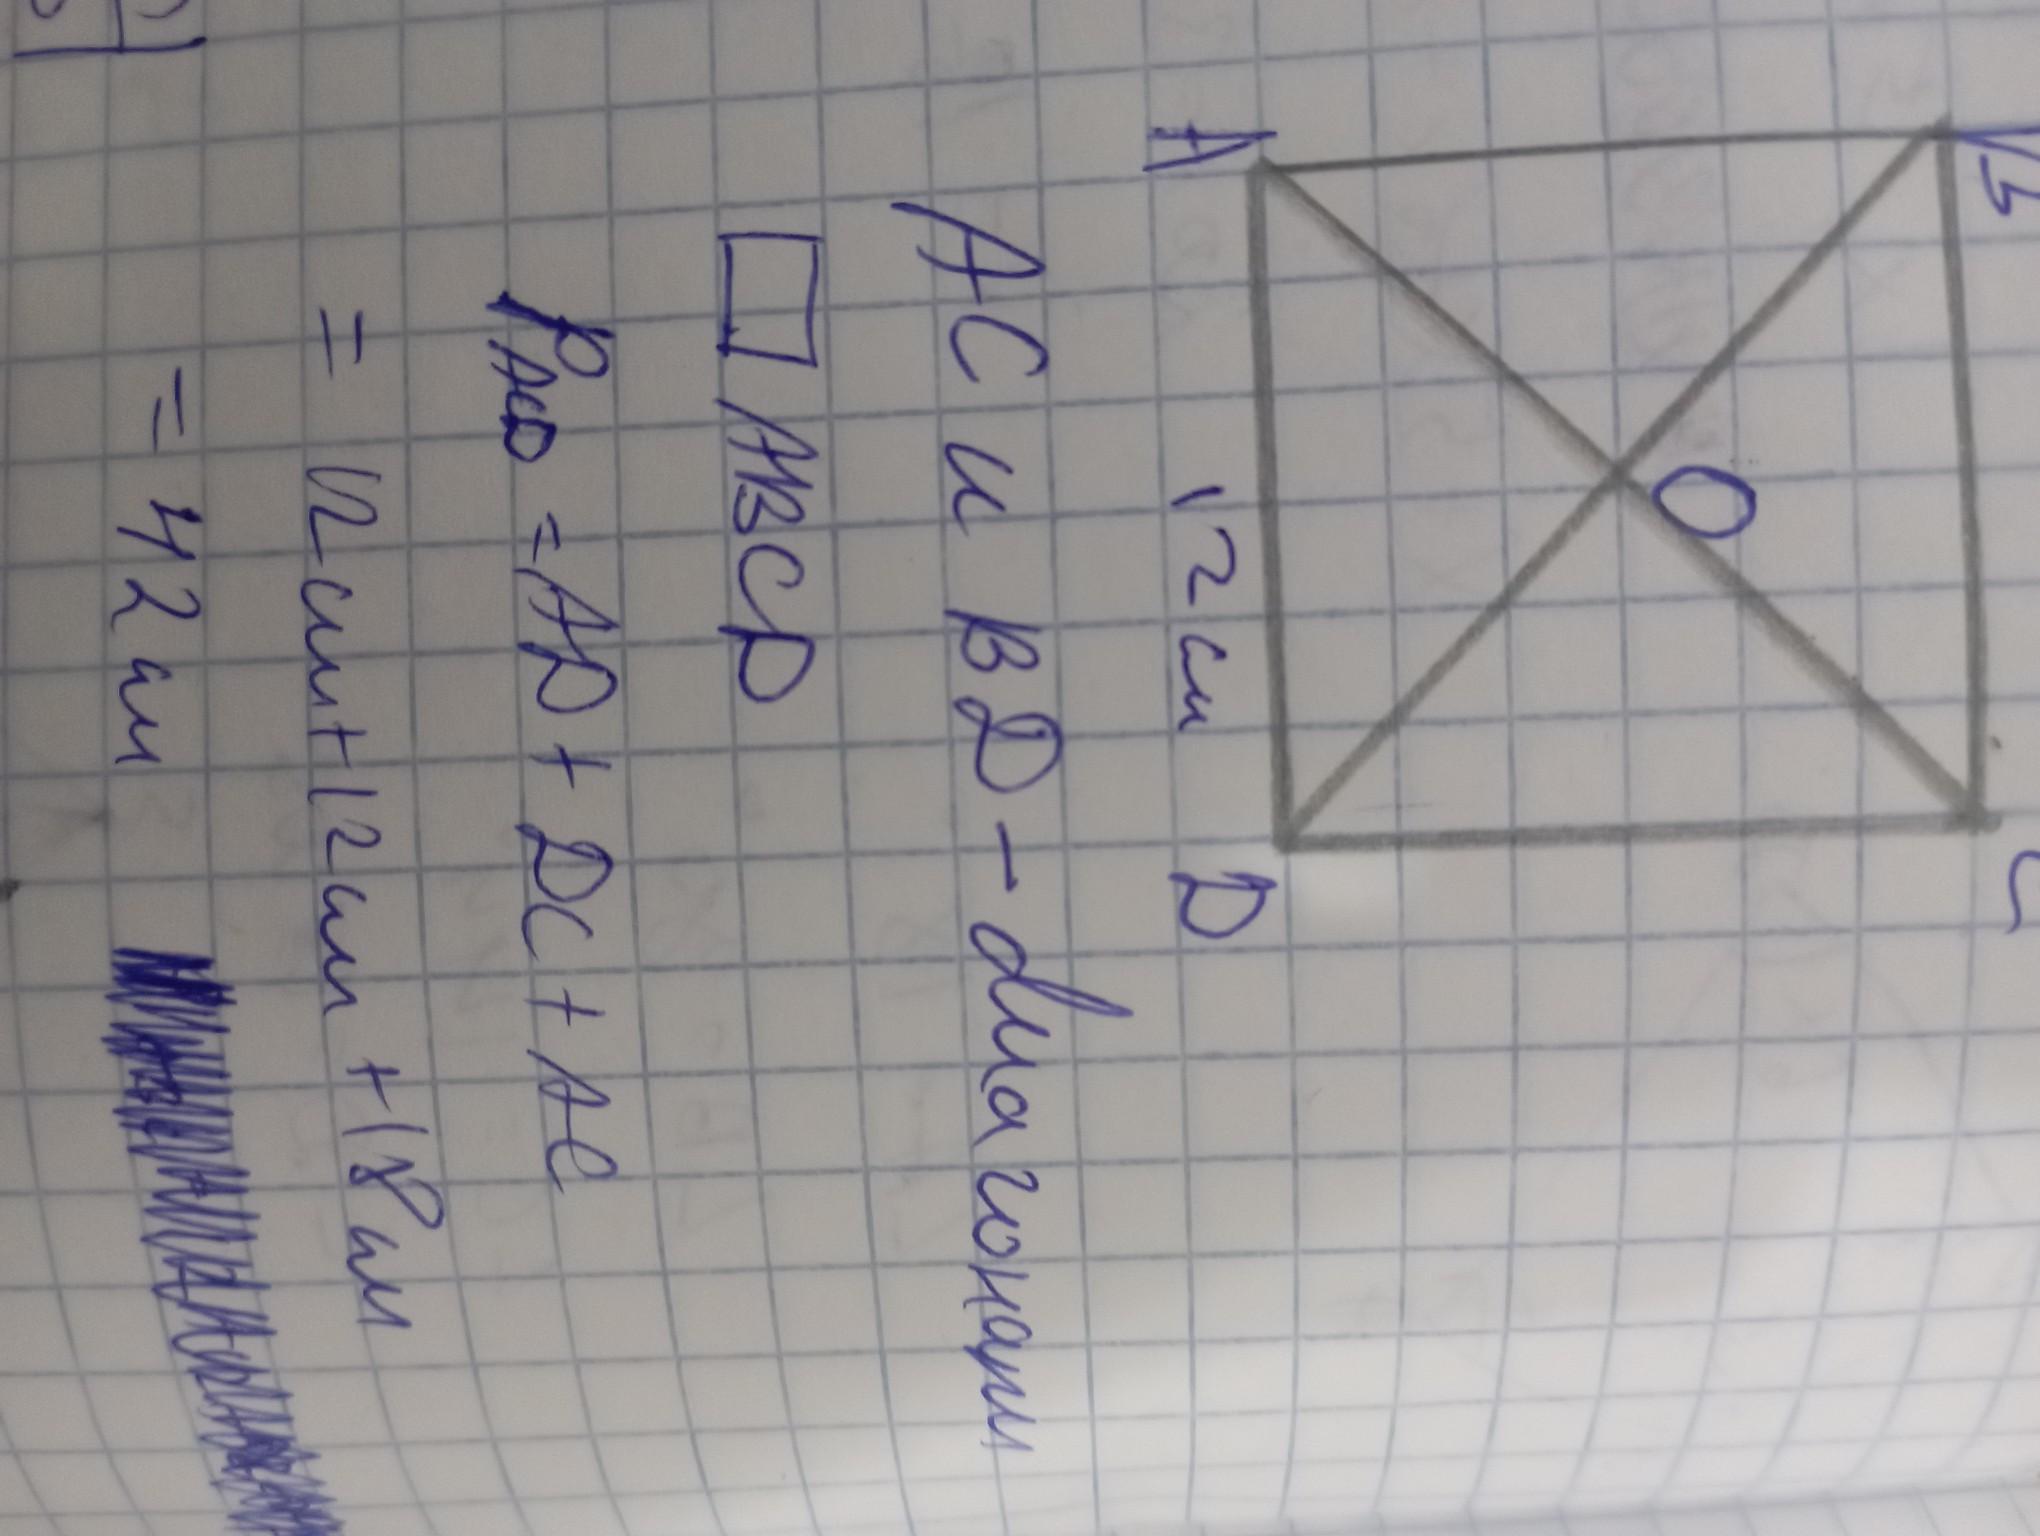 B C
O
A D
12 см
AC и BD - диагонали
□ ABCD
P = AD + DC + AC
= 12 см + 12 см + 18 см
= 42 см